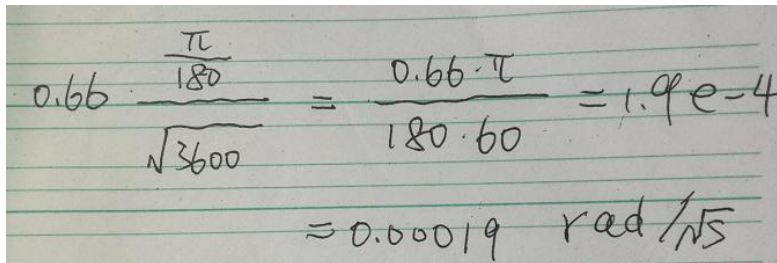 0.66 · (π/180)/√3600 = (0.66·π)/(180·60) = 1.9e-4
= 0.00019 rad/√s